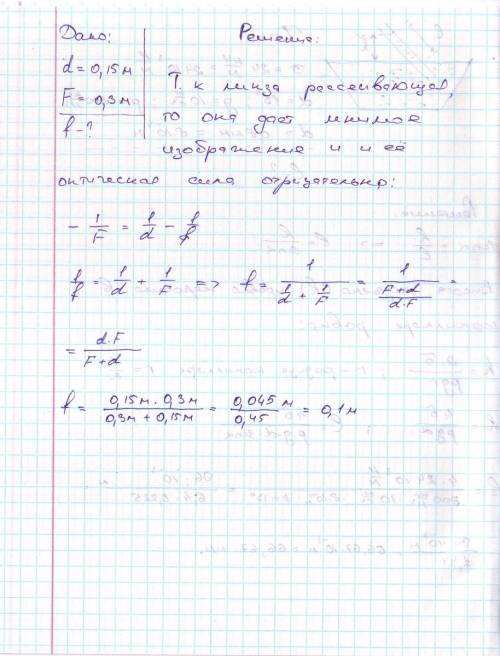 Дано:
Решение:
d = 0,15 м
F = 0,3 м
f - ?
Т. к линза рассеивающая,
то она даёт мнимое
изображение и и её
оптическая сила отрицательна:
- 1/F = 1/d - 1/f
1/f = 1/d + 1/F => f = 1/(1/d + 1/F) = 1/((F+d)/(d.F)) =
= d.F/(F+d)
f = (0,15м . 0,3м)/(0,3м + 0,15м) = 0,045 м/0,45 = 0,1м